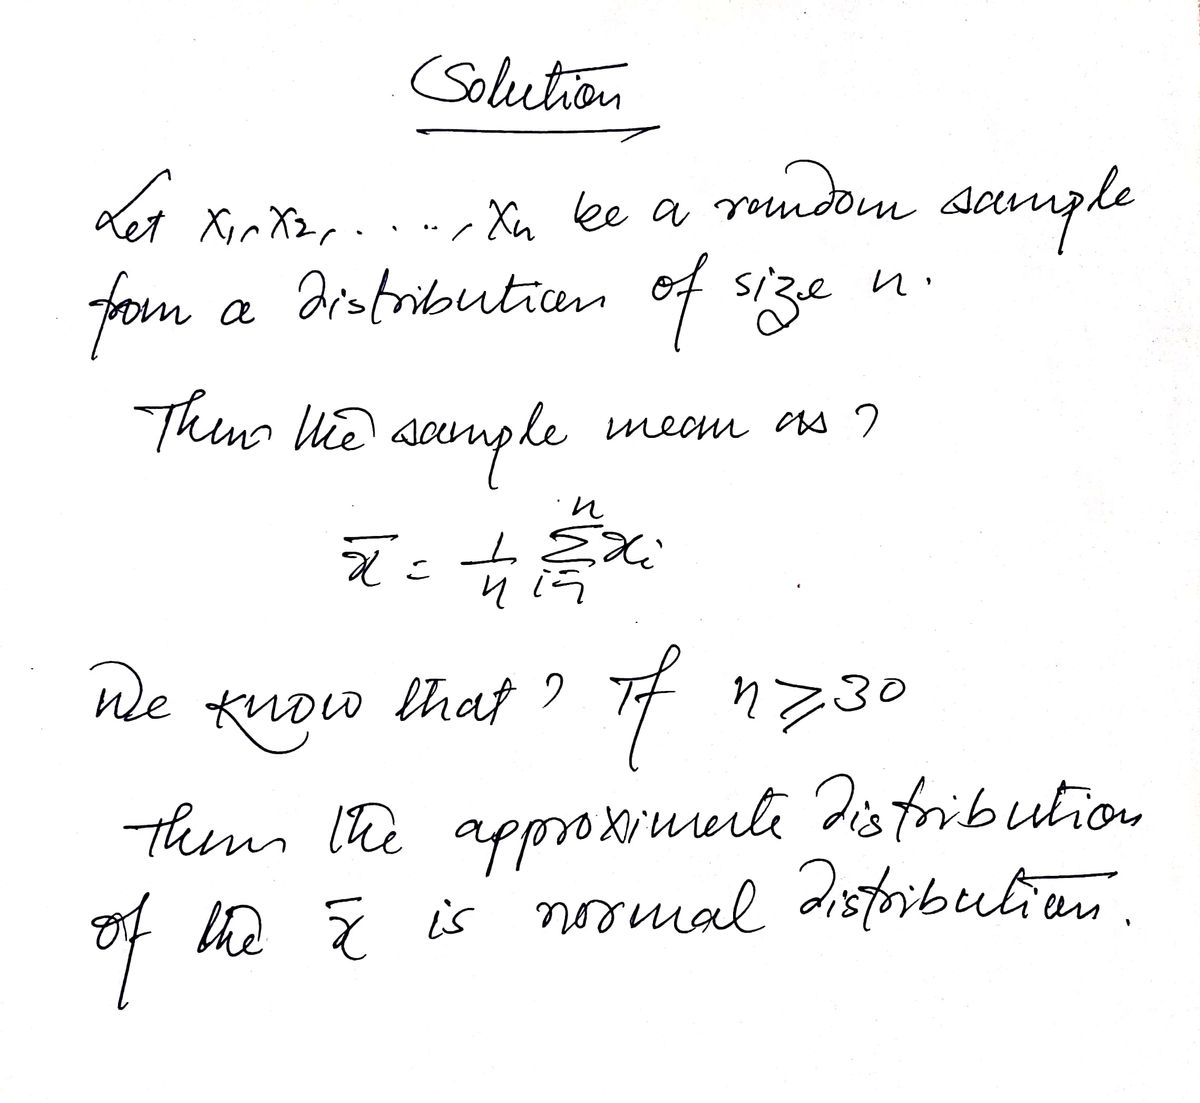 Solution
Let X₁, X₂, ....., Xn be a random sample
from a distribution of size n.
Then the sample mean as,
x̄ = 1/n Σᵢ₌₁ⁿ xᵢ
We know that, If n ≥ 30
then the approximate distribution
of the x̄ is normal distribution.